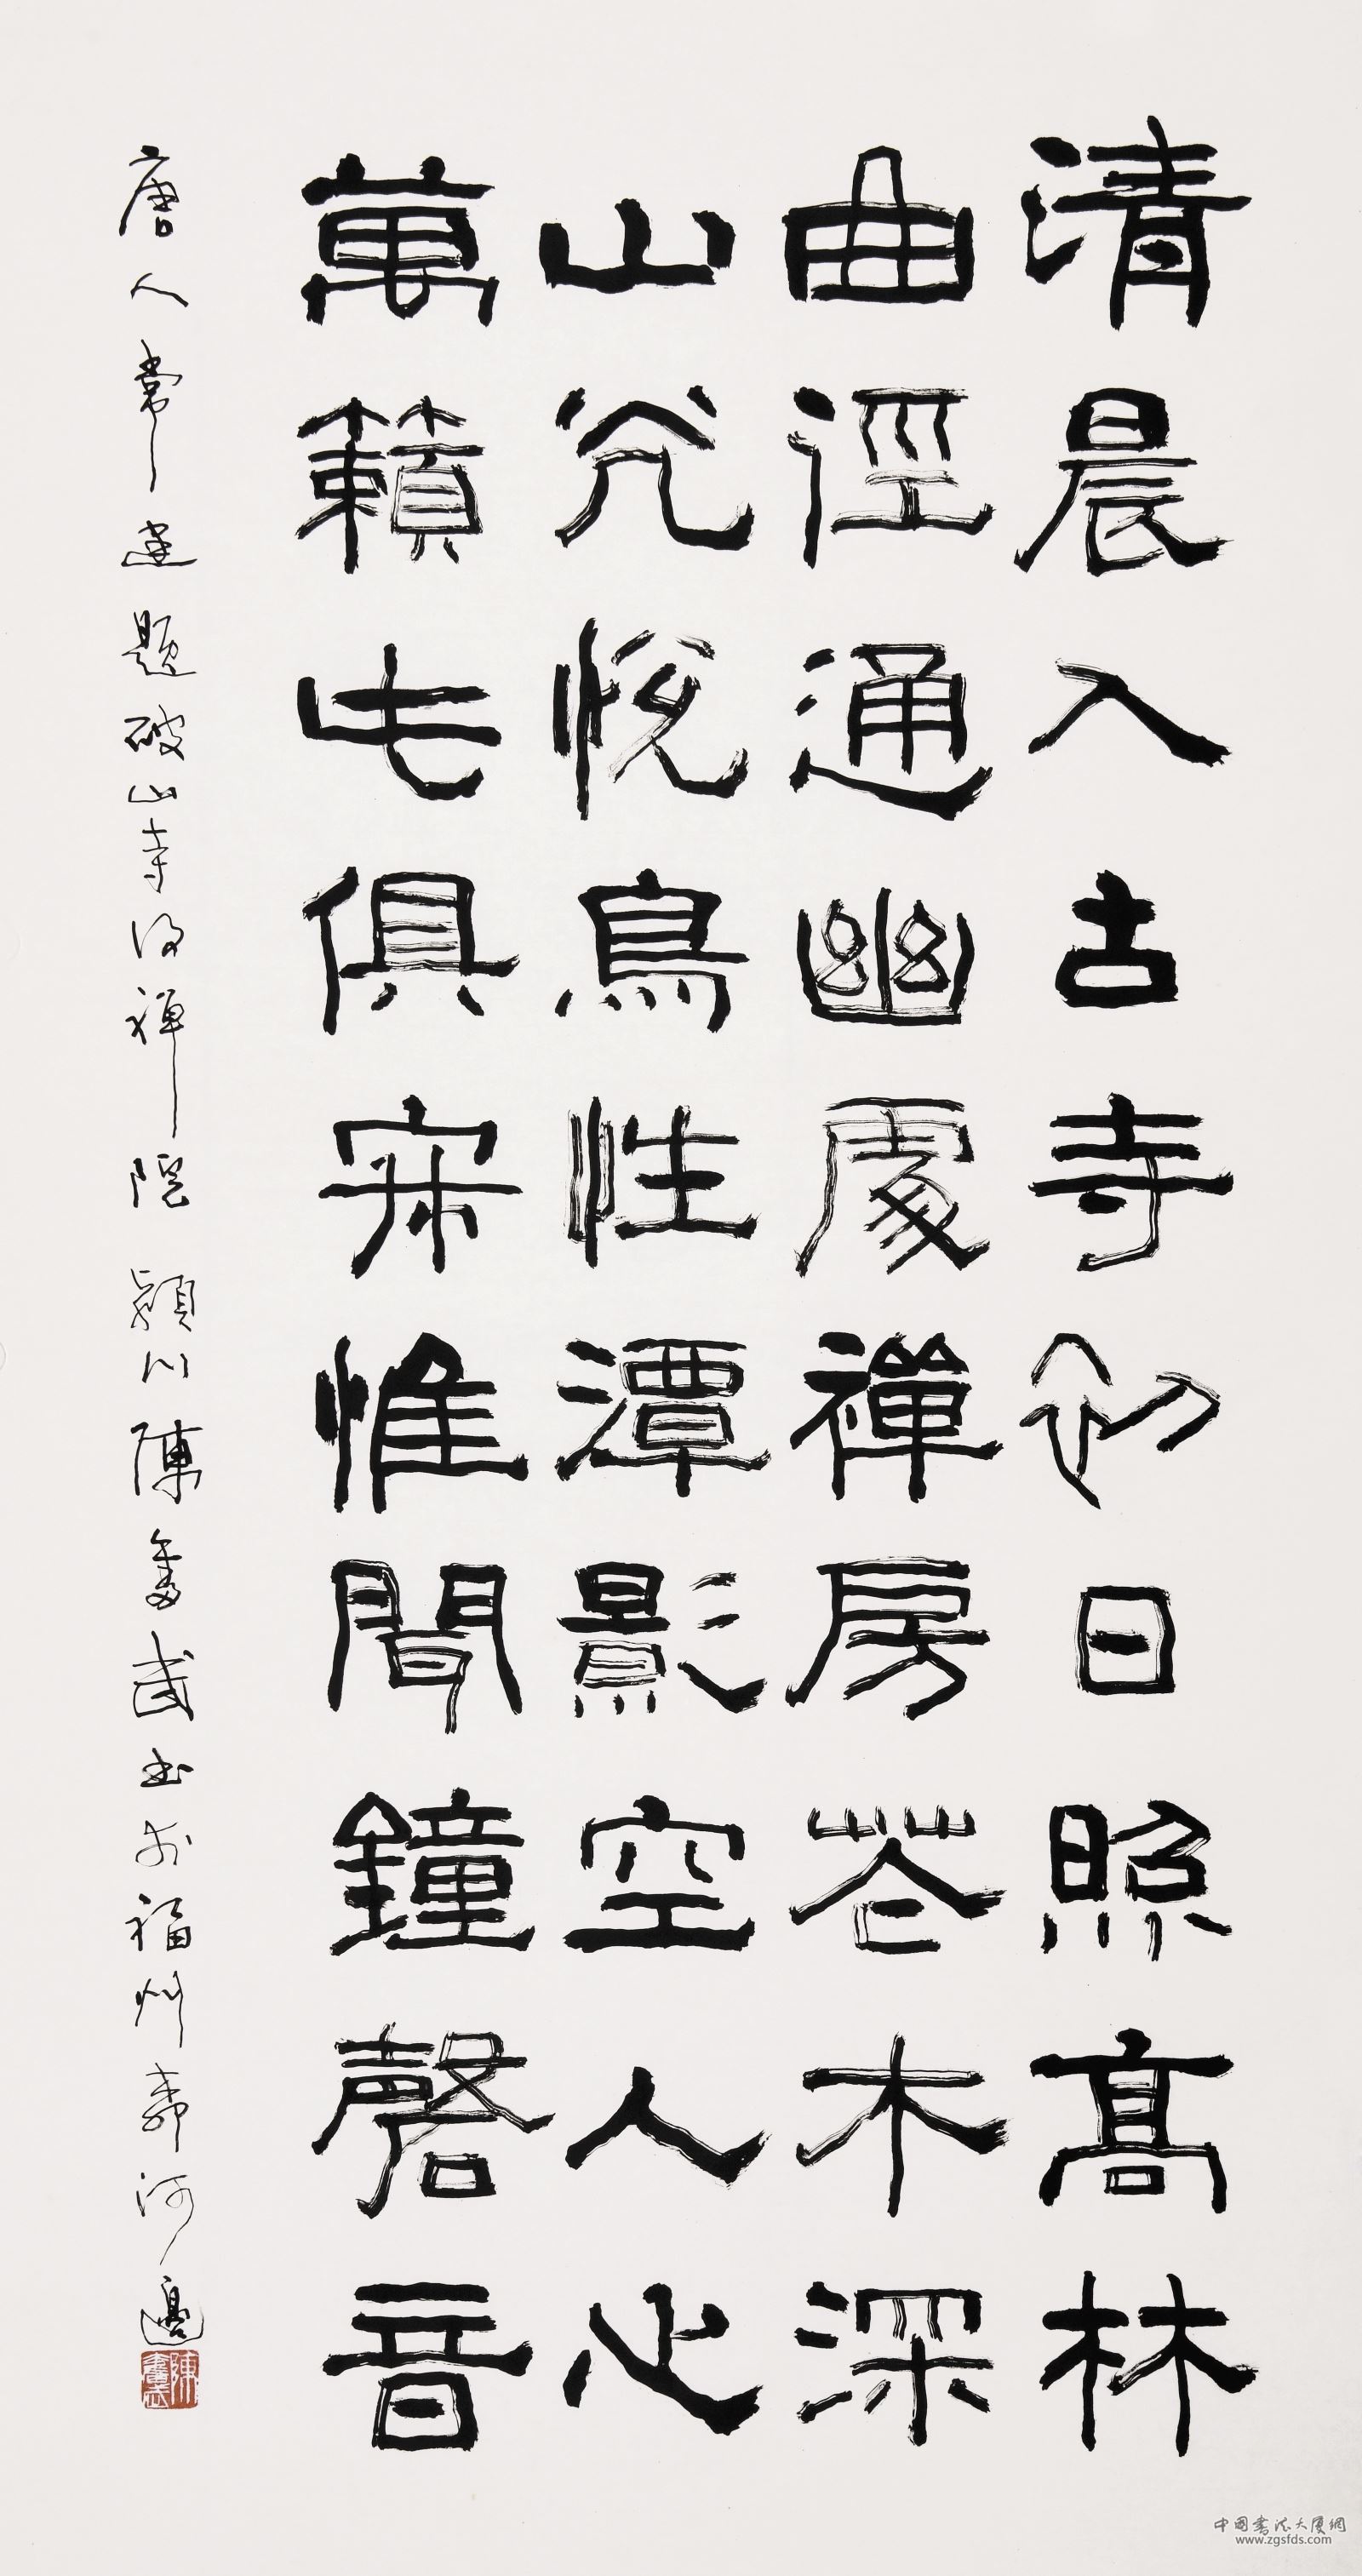 清晨入古寺初日照高林
曲徑通幽處禪房花木深
山光悅鳥性潭影空人心
萬籟此俱寂惟聞鐘磬音
唐人常建題破山寺後禪院 潁川陳奮武書於福州壽河邊
陳奮武
中国书法大厦網
www.zgsfds.com